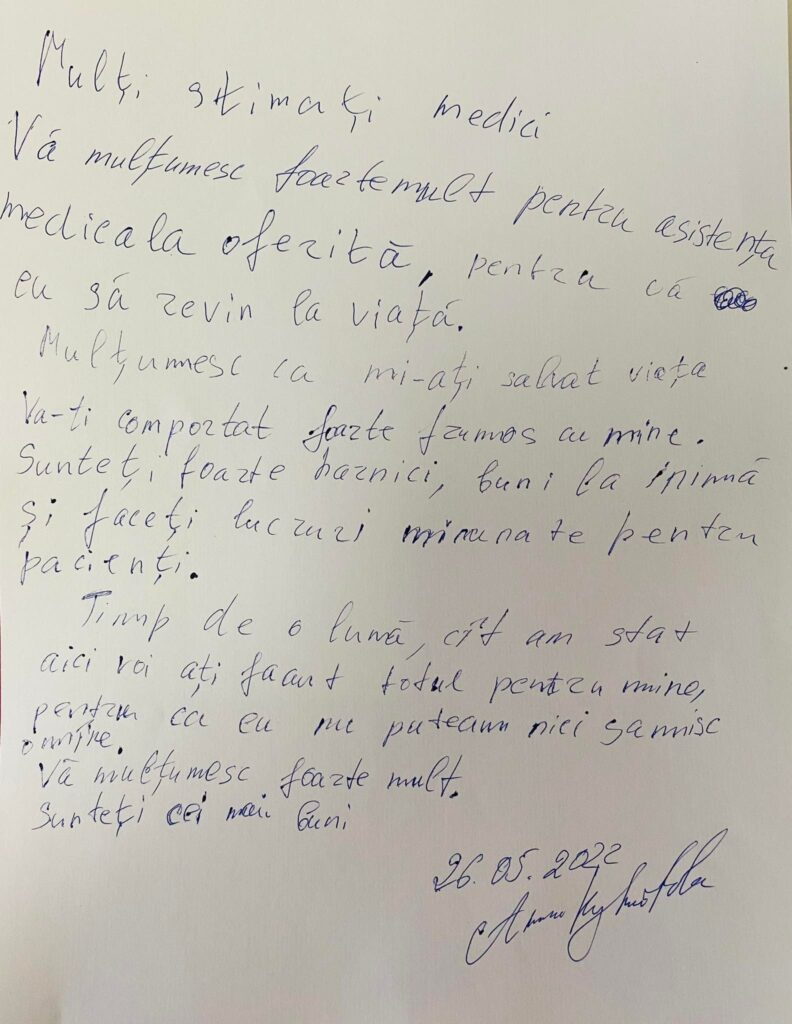 Mulți stimați medici
Vă mulțumesc foarte mult pentru asistența
medicala oferită, pentru că
eu să revin la viață.
Mulțumnesc ca mi-ați salvat viața
Va-ti comportat foarte frumos cu mine.
Sunteți foarte harnici, buni la inimă
și faceți lucruri minunate pentru
pacienți.
Timp de o lună, cît am stat
aici voi ați făcut totul pentru mine,
pentru ca eu nu puteam nici sa misc
o mține.
Vă mulțumesc foarte mult.
Sunteți cei mai buni
26.05.2022